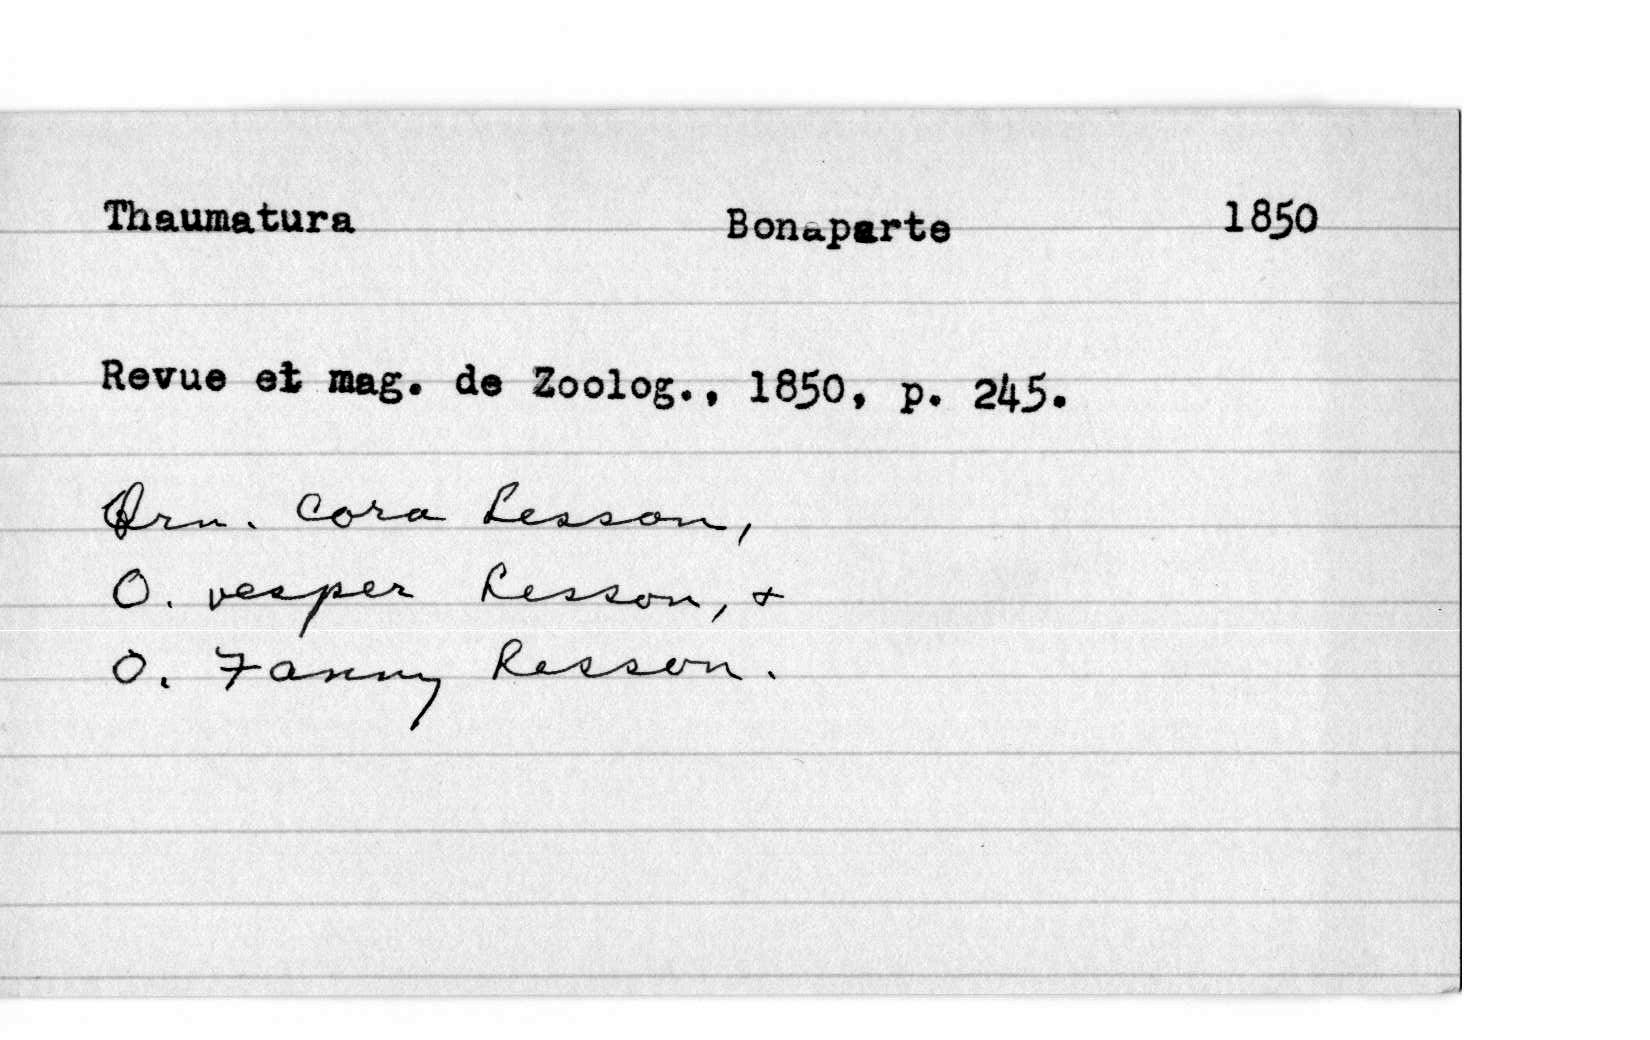 Thaumatura Bonaparte 1850
Revue et mag. de Zoolog., 1850, p. 245.
Orn. Cora Lesson,
O. vesper Lesson, &
O. Fanny Lesson.